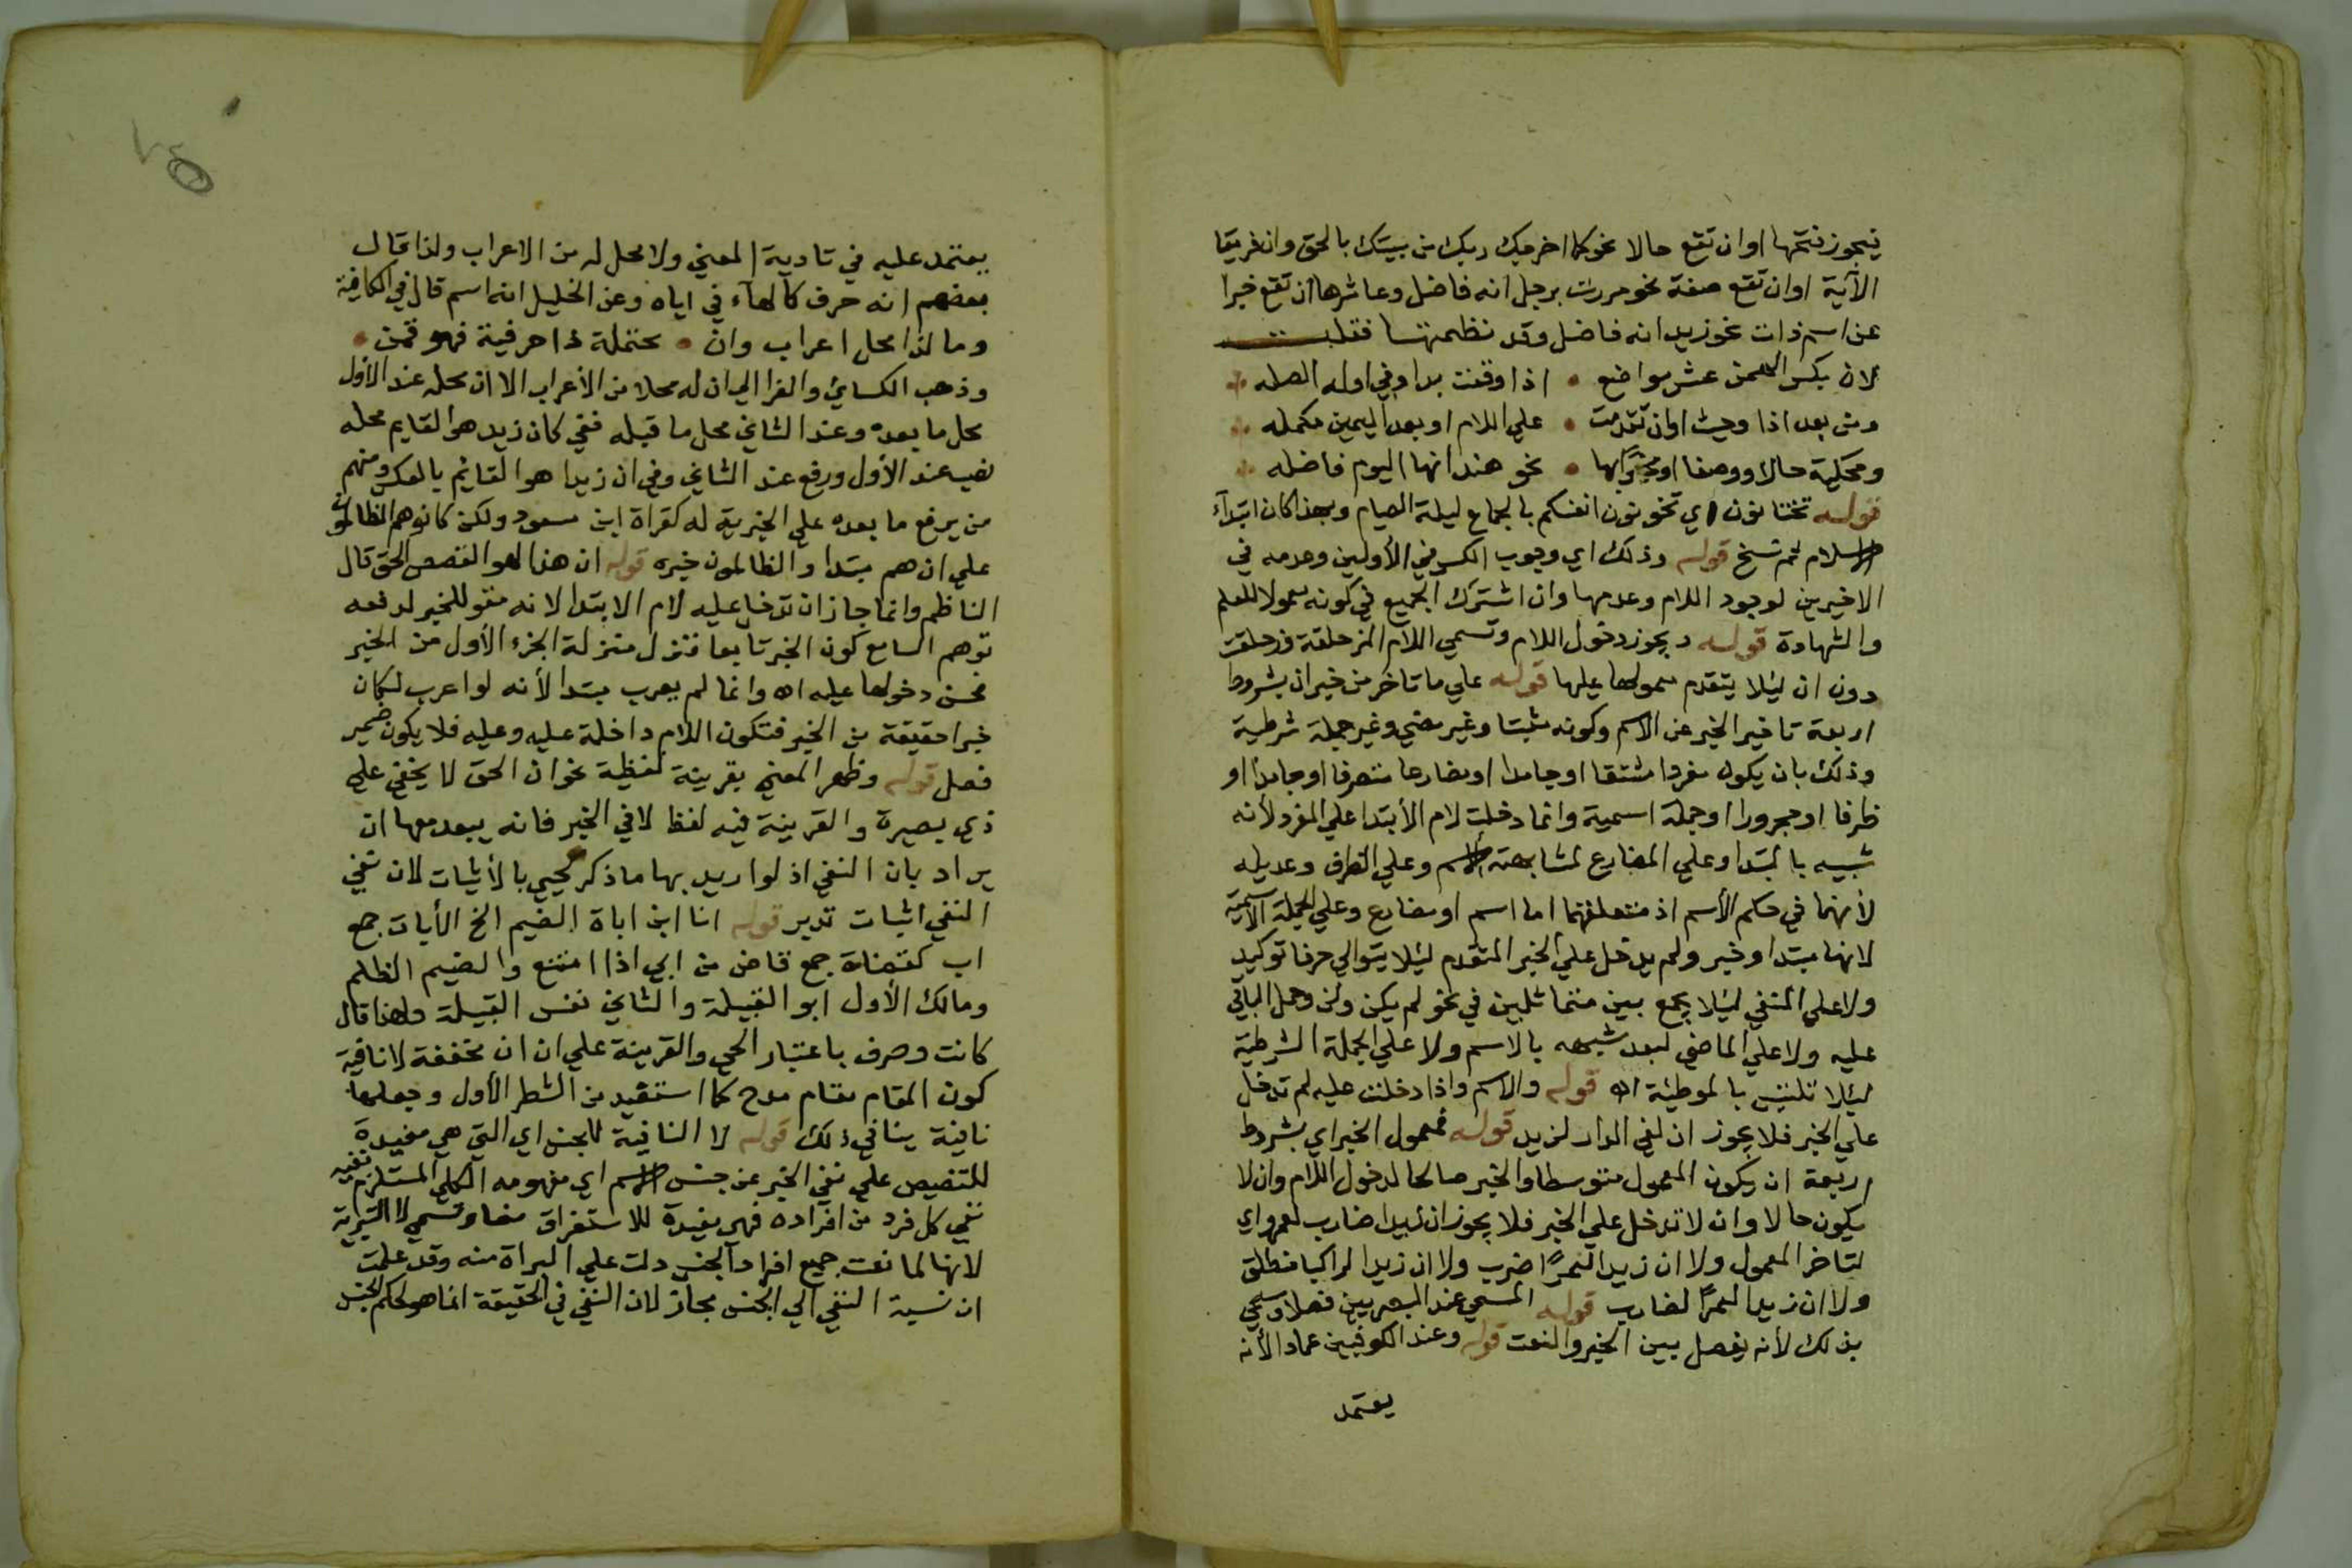 فيجوز فتحها او ان تقع حالا نحو كما اخرجك ربك من بيتك بالحق وان فريقا
الآية او ان تقع صفة نحو مررت برجل انه فاضل وعاشرها ان تقع خبرا
عن اسم ذات نحو زيد انه فاضل وقد نظمتها فقلت
لان بكسر الهمز عشر مواضع • اذا وقعت بدا وفي اوله الصله
ومن بعد اذا وحيث او ان تقدمت • علي اللام او بعد اليمين مكمله
ومحكية حالا ووصفا ومخبرا بها • نحو هند انها اليوم فاضله
قوله تختانون اي تخونون انفسكم بالجماع ليلة الصيام وهذا كان ابتداء
الاسلام ثم نسخ قوله وذلك اي وجوب الكسر في الأولين وعدمه في
الاخيرين لوجود اللام وعدمها وان اشترك الجميع في كونه معمولا للعلم
والشهادة قوله ويجوز دخول اللام وتسمي اللام المزحلقة زحلقت
دون ان ليلا يتقدم معمولها عليها قوله علي ما تاخر من خبر ان بشروط
اربعة تاخير الخبر عن الاسم وكونه مثبتا وغير مضي وغير جملة شرطية
وذلك بان يكون مفردا مشتقا او جامدا او مضارعا متصرفا او جامدا او
ظرفا او مجرورا او جملة اسمية وانما دخلت لام الأبتدا علي المفرد لأنه
شبيه بالمبتدا وعلي المضارع لمشابهته الاسم وعلي الظرف وعديله
لأنهما في حكم الأسم اذ متعلقهما اما اسم او مضارع وعلي الجملة الاسمية
لانها مبتدا وخبر ولم يدخل علي الخبر المتقدم ليلا يتوالي حرفا توكيد
ولا علي المنفي ليلا يجمع بين متماثلين في نحو لم يكن ولن وحمل الباقي
عليه ولا علي الماضي لبعد شبهه بالاسم ولا علي الجملة الشرطية
ليلا تلتبس بالموطية اه قوله والاسم واذا دخلت عليه لم تدخل
علي الخبر فلا يجوز ان لفي الدار لزيد قوله فمعمول الخبر اي بشروط
اربعة ان يكون المعمول متوسطا والخبر صالحا لدخول اللام وان لا
يكون حالا وان لا تدخل علي الخبر فلا يجوز ان زيدا ضارب لعمرو اي
لتاخر المعمول ولا ان زيدا لعمرًا ضرب ولا ان زيدا لراكبا منطلق
ولا ان زيدا لعمرًا لضارب قوله المسمي عند البصريين فصلا وسمي
بذلك لأنه يفصل بين الخبر والنعت قوله وعند الكوفيين عماد الأنه
يعتمد
يعتمد عليه في تادية المعني ولا محل له من الاعراب ولذا قال
بعضهم انه حرف كالهاء في اياه وعن الخليل انه اسم قال في الكافية
وما لذا محل اعراب وان • تحتمله ذا حرفية فهو قمن •
وذهب الكسائي والفرا الي ان له محلا من الأعراب الا ان محله عند الأول
محل ما بعده وعند الثاني محل ما قبله ففي كان زيد هو القايم محله
نصب عند الأول ورفع عند الثاني وفي ان زيدا هو القائم بالعكس ومنهم
من يرفع ما بعده علي الخبرية له كقراة ابن مسعود ولكن كانوا هم الظالمون
علي ان هم مبتدا والظالمون خبره قوله ان هذا لهو القصص الحق قال
الناظم وانما جاز ان تدخل عليه لام الابتدا لانه مقو للخبر لدفعه
توهم السامع كون الخبر تابعا فتنزل منزلة الجزء الأول من الخبر
فحسن دخولها عليه اه وانما لم يعرب مبتدا لأنه لو اعرب لكان
خبرا حقيقة من الخبر فتكون اللام داخلة عليه وعليه فلا يكون ضمير
فصل قوله وظهر المعني بقرينة لفظية نحو ان الحق لا يخفي علي
ذي بصيرة والقرينة فيه لفظ لا في الخبر فانه يبعد معها ان
يراد بان النفي اذ لو اريد بها ما ذكر لجيي بالأثبات لان نفي
النفي اثبات تدبر قوله انا ابن اباة الضيم الخ الأباة جمع
اب كقضاة جمع قاض من ابي اذا امتنع والضيم الظلم
ومالك الأول ابو القبيلة والثاني نفس القبيلة ولهذا قال
كانت وصرف باعتبار الحي والقرينة علي ان ان مخففة لا نافية
كون المقام مقام مدح كما استفيد من الشطر الأول وجعلها
نافية ينافي ذلك قوله لا النافية للجنس اي التي هي مفيدة
للتنصيص علي نفي الخبر عن جنس الاسم اي مفهومه الكلي المستلزم نفيه
نفي كل فرد من افراده فهي مفيدة للاستغراق نصا وتسمي لا التبرية
لانها لما نفت جميع افراد الجنس دلت علي البراة منه وقد علمت
ان نسبة النفي الي الجنس مجاز لان النفي في الحقيقة انما هو لحكم الجنس